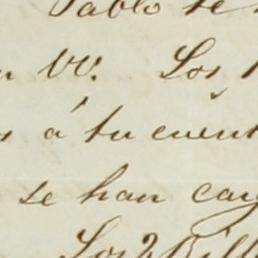 Pablo se
VV. Los
á tu cuent
se han carg
Los 2 Bill